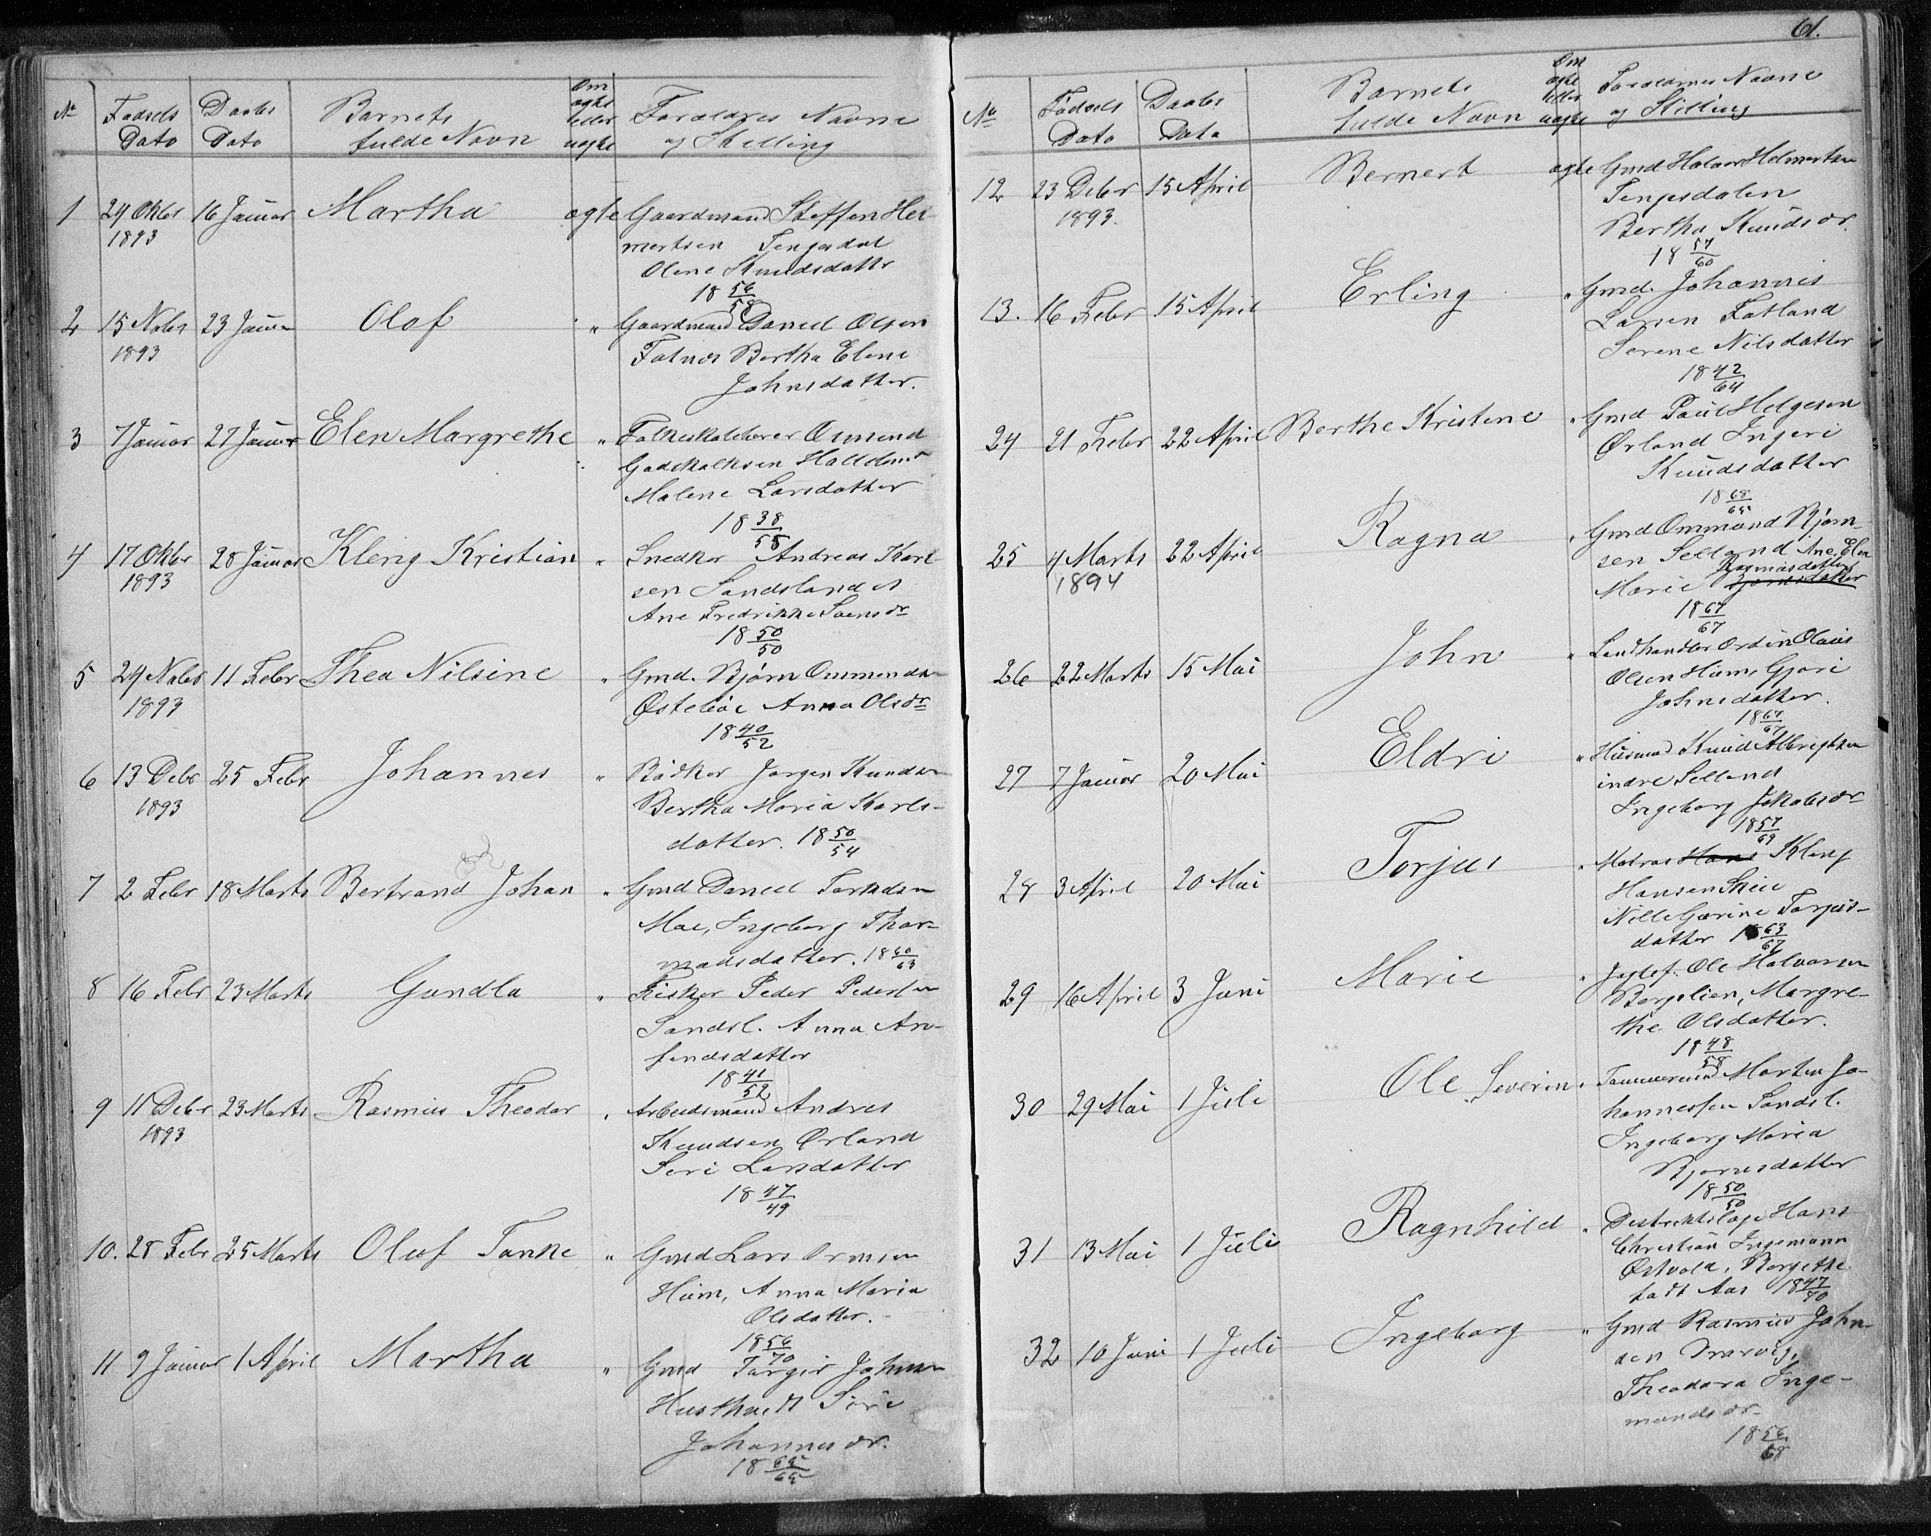 61.
No
Fødsels
Dato
Daabs
Dato
Barnets
fulde Navn
Om
ægte
eller
uægte
Forældres Navne
og Stilling
1 29 Oktbr 16 Januar Martha ægte Gaardmand Steffen Hel-
1893
mertsen Tengesdal
Olene Knudsdattr
18 56/58
2 15 Novbr 23 Januar Olaf " Gaardmand Daniel Olsen
1893
Fatnes Bertha Elene
Johnsdatter.
3 7 Januar 27 Januar Elen Margrethe " Folkeskolelærer Osmund
Godskalksen
Malene Larsdatter
18 38/58
4 17 Oktbr 28 Januar Kleng Kristian " Snedker Andreas Karl-
1893
sen Sandsland og
Ane Fredrikke Svensdr
18 50/50
5 29 Novbr 11 Febr Thea Nilsine " Gmd. Bjørn Ommundsn
1893
Østebøe Anna Olsdr
18 40/52
6 13 Debr 25 Febr Johannes " Bødker Jørgen Knudsn
1893
Bertha Maria Karls-
datter. 18 50/54
7 2 Febr 18 Marts Bertrand Johan " Gmd Daniel
Moe, Ingeborg Thor-
modsdatter. 18 60/63
8 16 Febr 23 Marts Gundla " Fisker Peder Pedersen
Sandsl. Anna An-
fendsdatter
18 41/52
9 11 Debr 23 Marts Rasmus Theodor " Arbeidsmand Andres
1893
Knudsen Ørland
Siri Larsdatter
18 47/49
10. 28 Febr 25 Marts Oluf Tanke " Gmd Lars Ormsen
Hiim, Anna Maria
Olsdatter.
18 56/70
11 9 Januar 1 April Martha " Gmd Torgir Johnsn
Siri
Johannesdr.
18 65/65
No
Fødsels
Dato
Daabs
Dato
Barnets
fulde Navn
Om
ægte
eller
uægte
Forældrenes Navne
og Stilling
12 23 Debr 15 April Bernert ægte Gmd Halvor Helmertsen
1893.
Tengesdalen
Bertha Knudsdr.
18 57/60
13. 16 Febr 15 April Erling " Gmd. Johannis
Larsen Fatland
Serene Nilsdatter
18 42/64
24 21 Febr 22 April Berthe Kristine " Gmd Poul Helgesen
Ørland Ingeri
Knudsdatter
18 68/65
25 4 Marts 22 April Ragna " Gmd Ommund Bjørn-
1894
sen Selland Ane Elen
Marie Rasmusdatter
18 67/67
26 22 Marts 15 Mai John " Landhandler Olaus
Olsen Hiim, Gjøri
Johnsdatter.
18 67/67
27 7 Januar 20 Mai Eldri " Husmd Knud Albrigtsen
indre Selland
Ingeborg Jakobsdr
18 57/69
28 3 April 20 Mai Torjus " Matros Hans Kleng
Hansen
Nille Gurine Torjus-
datter 18 63/67
29 16 April 3 Juni Marie " Ole Halvorsen
Bergelien, Margre-
the Olsdatter.
18 48/58
30 29 Mai 1 Juli Ole Severin " Tømmermand Morten Jo-
hannessen Sandsl.
Ingeborg Maria
Bjørnsdatter
18 50/50
31 13 Mai 1 Juli Ragnhild " Distriktslæge Hans
Christian Ingemann
Østvold, Borgethe
født Aas 18 47/70
32 10 Juni 1 Juli Ingeborg " Gmd Rasmus John-
sen Drarvig,
Theodora Inge-
mundsdr
18 56/68